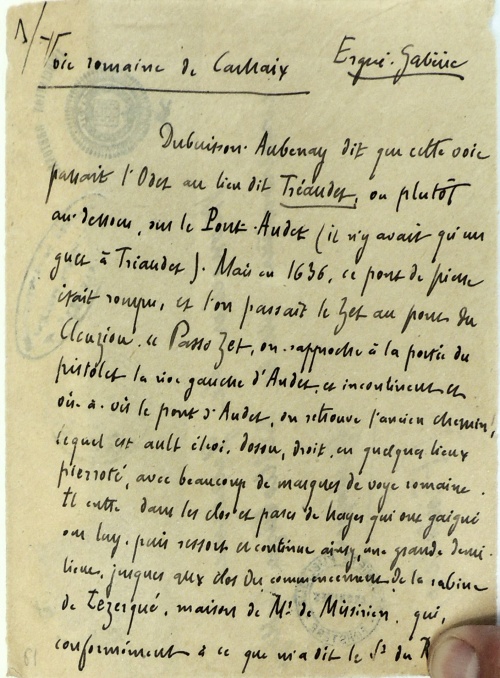 Voie romaine de Carhaix Ergué-Gabéric
Dubuisson-Aubenay dit que cette voie
passait l'Odet au lieu dit Tréaudet, ou plutôt
au-dessous, sur le Pont-Audet (il n'y avait qu'un
guet à Tréaudet). Mais en 1636, ce pont de pierre
était rompu, et l'on passait le Zet au pont du
Cleuziou. "Passo Zet, on rapproche à la portée du
pistolet la rive gauche d'Audet, et incontinent et
vis-à-vis le pont d'Audet, on retrouve l'ancien chemin,
lequel est dossu, droit, en quelques lieux
pierroté, avec beaucoup de marques de voye romaine.
Il entre dans les clos et parcs de hayes qui ont gaigné
sur luy, puis ressort et continue ainsy, une grande demi-
lieue, jusques aux clos du commencement de la
de Lezergué, maison de Mr de Missirien, qui,
conformément à ce que m'a dit le Sr du